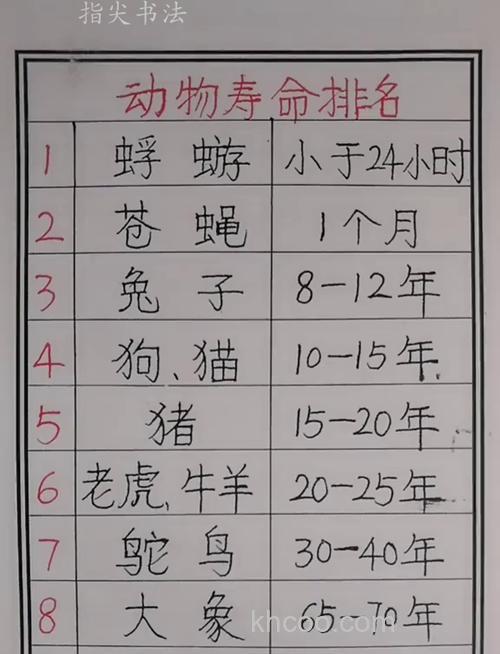 指尖书法
动物寿命排名
1 蜉蝣 小于24小时
2 苍蝇 1个月
3 兔子 8-12年
4 狗、猫 10-15年
5 猪 15-20年
6 老虎、牛羊 20-25年
7 鸵鸟 30-40年
8 大象 65-70年
khcoo.com